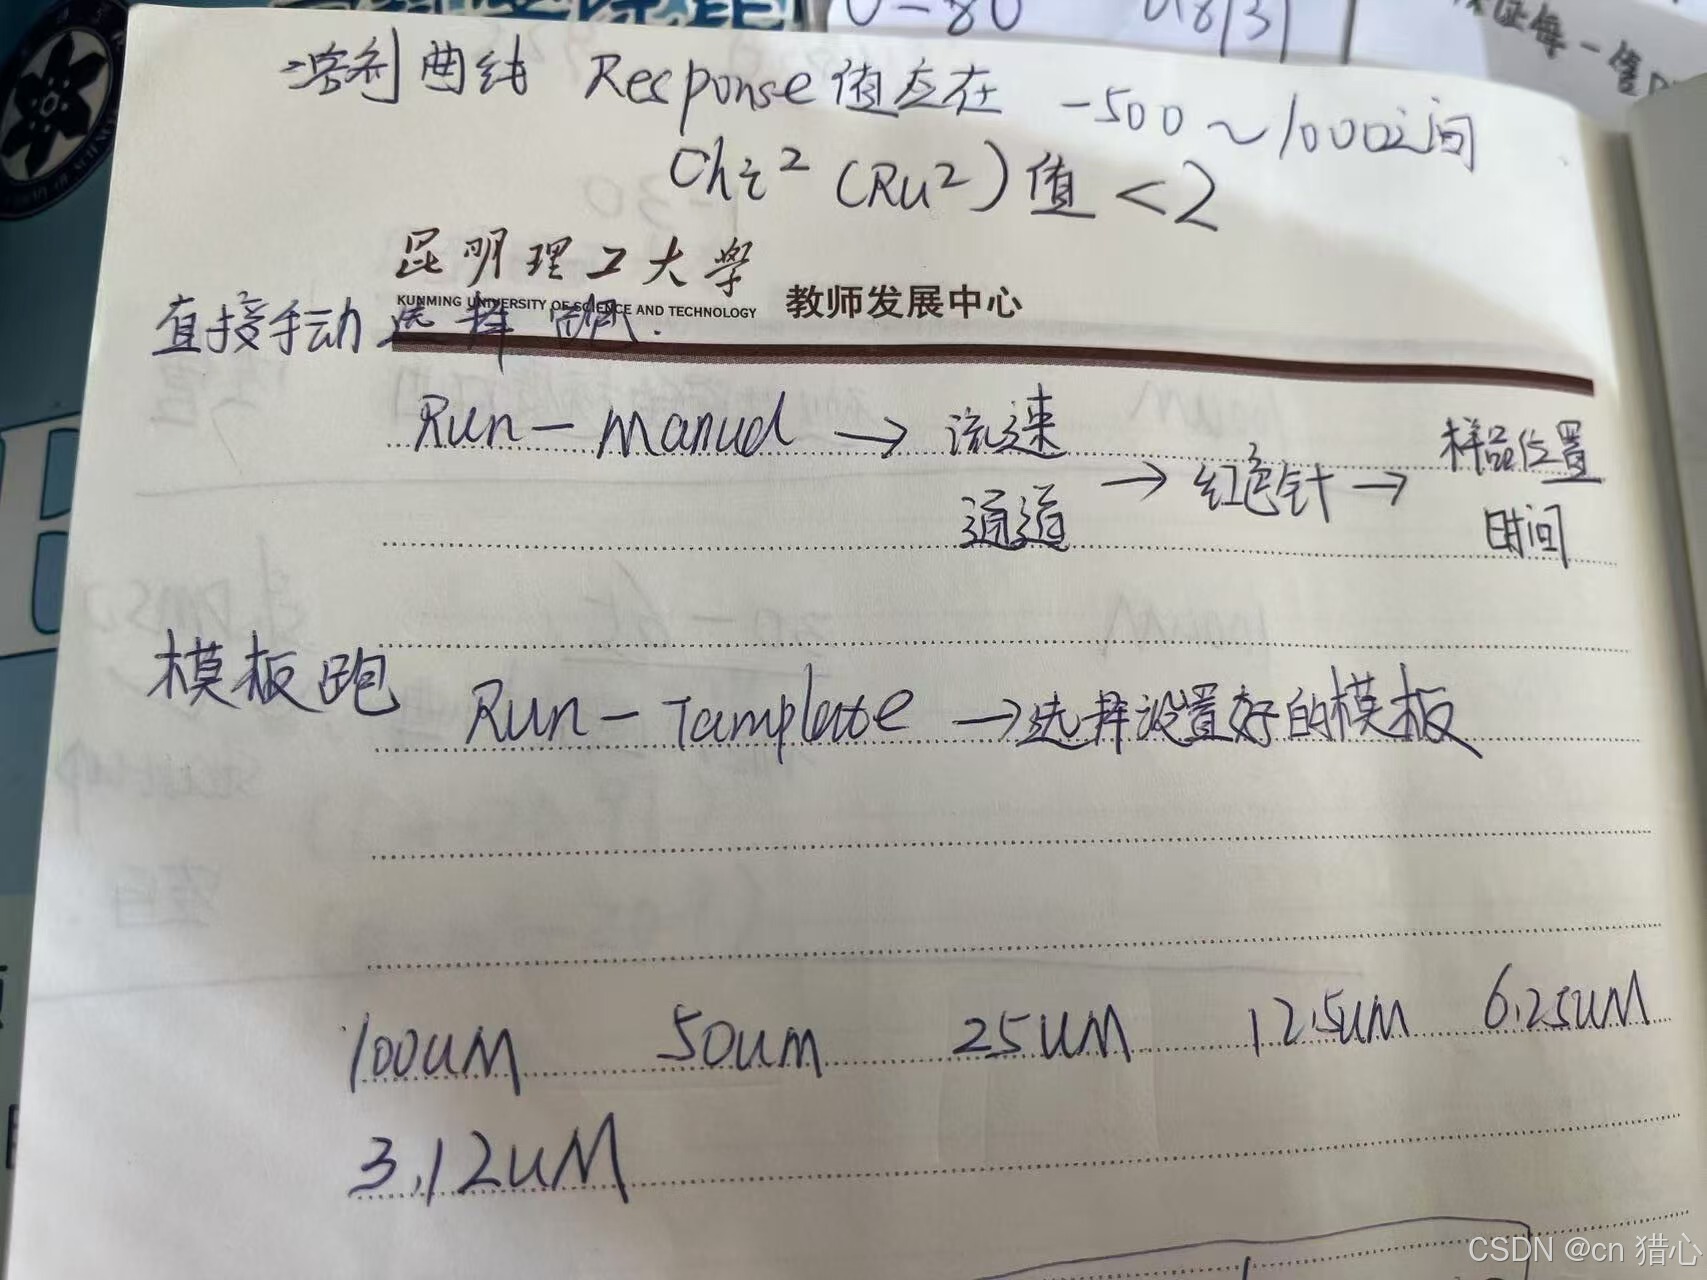 溶剂曲线 Response值应在 -500~1000之间
Chi² (Ru²) 值 <2
昆明理工大学
KUNMING UNIVERSITY OF SCIENCE AND TECHNOLOGY
教师发展中心
直接手动选择
Run - manual → 流速 通道 → 红色针 → 样品位置 时间
模板跑 Run - Tamplate → 选择设置好的模板
100uM 50um 25uM 12.5uM 6.25uM
3.12uM
CSDN @cn 猎心